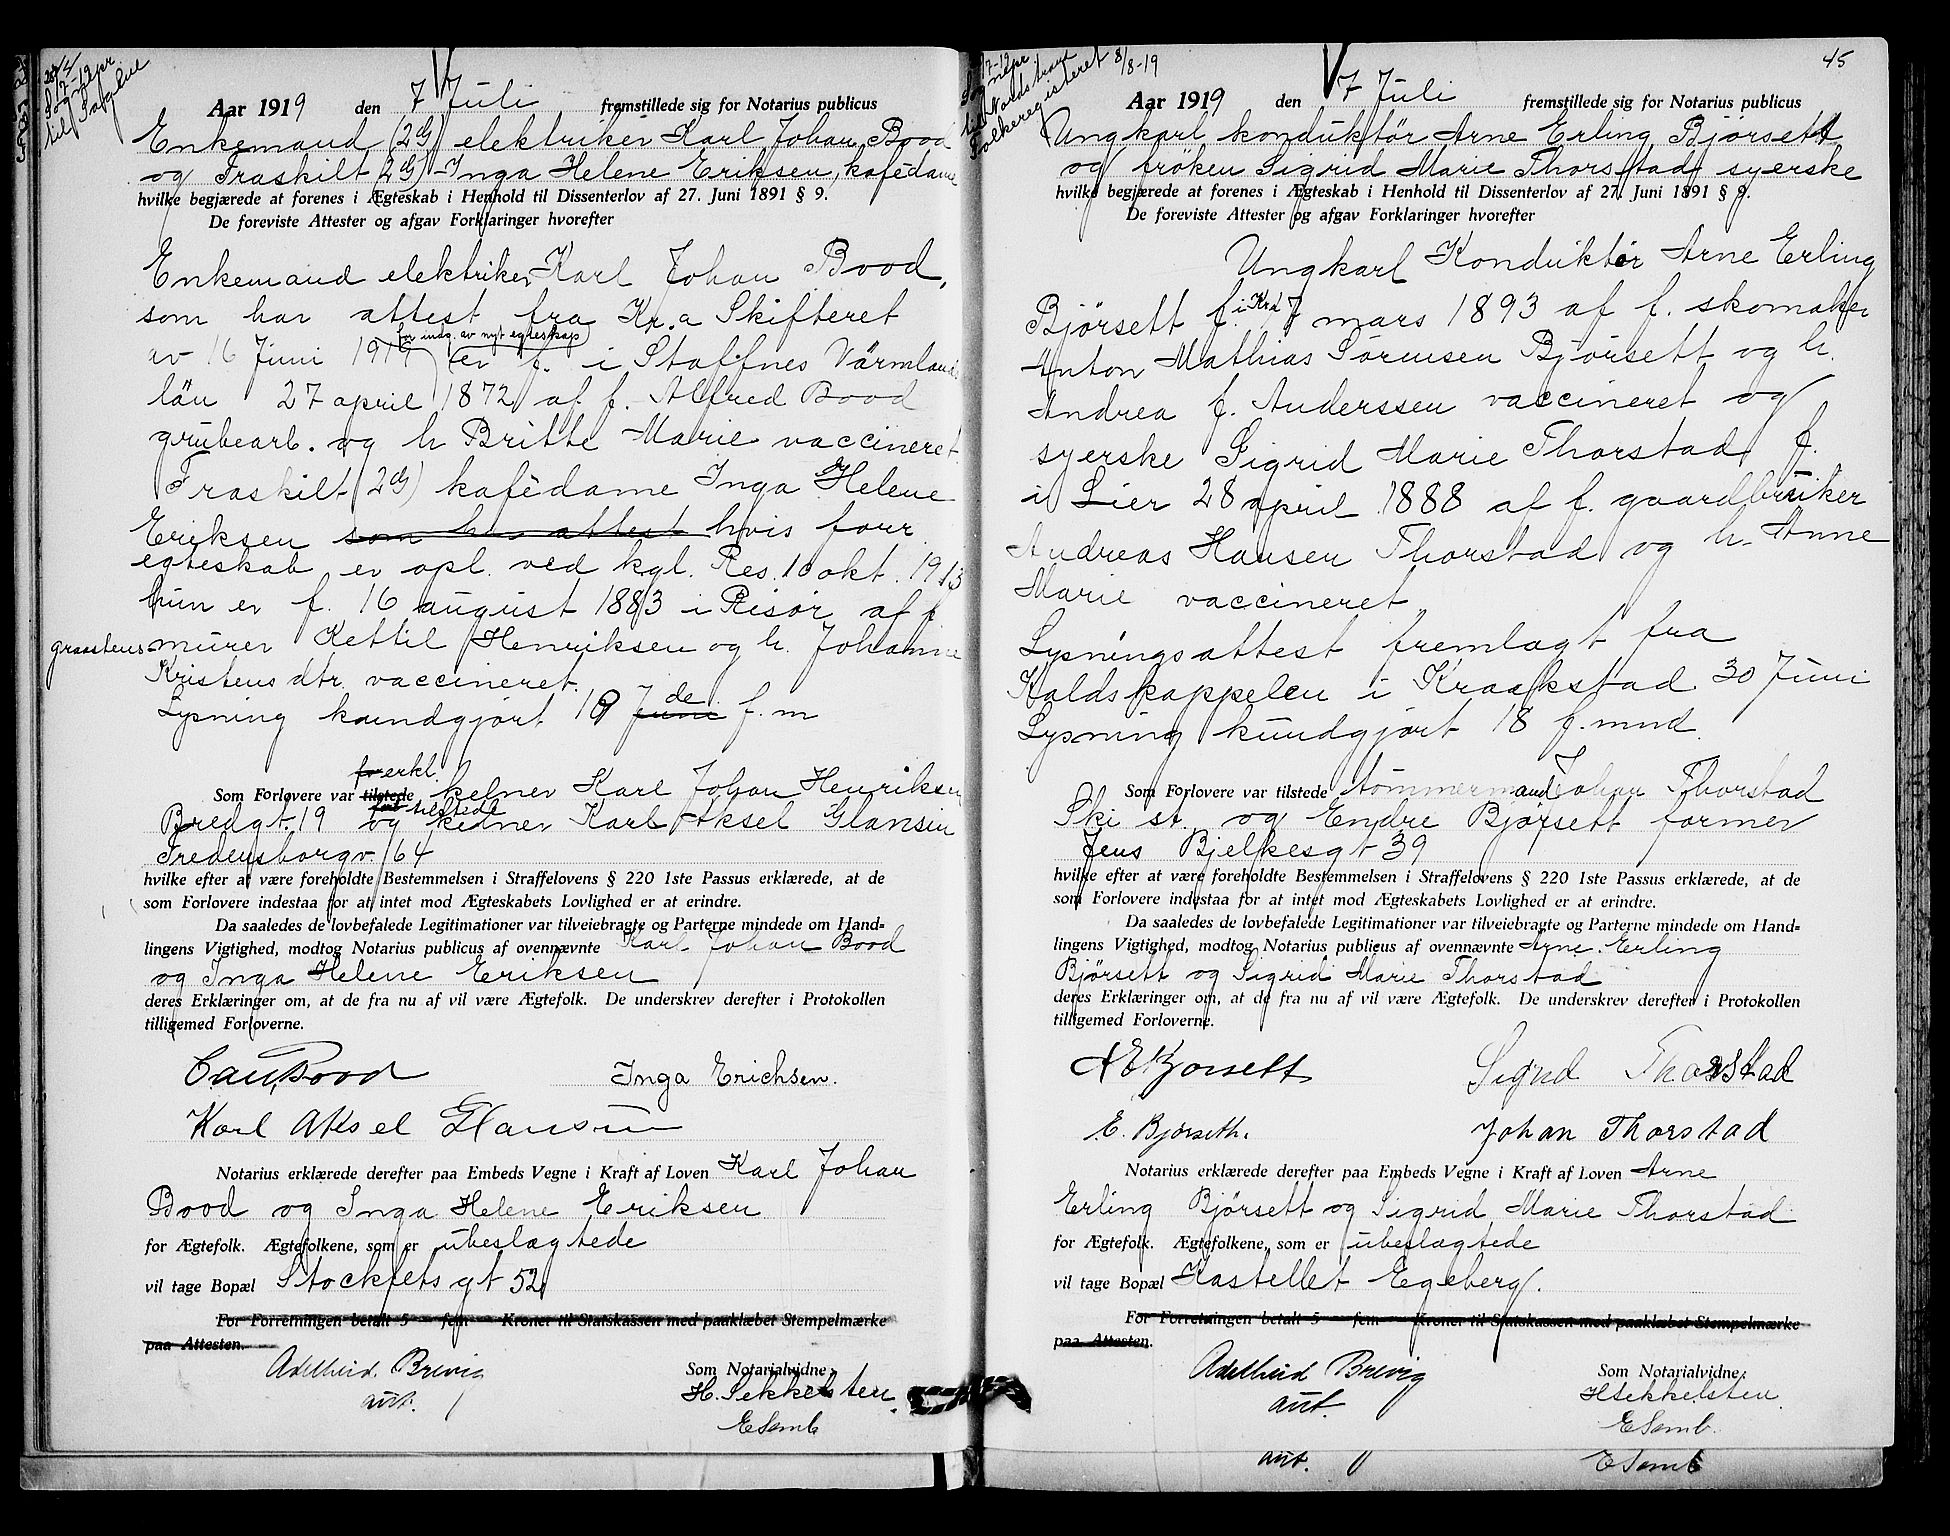 Aar 1919 den 7 Juli fremstillede sig for Notarius publicus
Enkemand (2dg) elektriker Karl Johan Bood
og Fraskilt (2dg) Inga Helene Eriksen, kafédame
hvilke begjærede at forenes i Ægteskab i Henhold til Dissenterlov af 27. Juni 1891 § 9.
De foreviste Attester og afgav Forklaringer hvorefter
Enkemand elektriker Karl Johan Bood,
som har attest fra Kr.a Skifteret
for indg. av nyt egteskap
av 16 Juni 1919 er f. i Staffnes Värmlands
län 27 april 1872 af f. Alfred Bood
grubearb. og h Britte Marie vaccineret.
Fraskilt (2dg) kafédame Inga Helene
Eriksen som har attest hvis forr.
egteskab er opl. ved kgl. Res. 10 okt. 1913
hun er f. 16 august 1883 i Risör af f.
graastens murer Kettil Henriksen og h. Johanne
Kristens dtr. vaccineret.
Lysning kundgjort 19 Juni de f. m
for erkl.
Som Forlovere var tilstede kelner Karl Johan Henriksen
Bredgt. 19 og kelner Karl Aksel Glansén
Fredensborgv. 64
hvilke efter at være foreholdte Bestemmelsen i Straffelovens § 220 1ste Passus erklærede, at de
som Forlovere indestaa for at intet mod Ægteskabets Lovlighed er at erindre.
Da saaledes de lovbefalede Legitimationer var tilveiebragte og Parterne mindede om Hand=
lingens Vigtighed, modtog Notarius publicus af ovennævnte Karl Johan Bood
og Inga Helene Eriksen
deres Erklæringer om, at de fra nu af vil være Ægtefolk. De underskrev derefter i Protokollen
tilligemed Forloverne.
Bood Inga Erichsen.
Karl Aksel Glansén
Notarius erklærede derefter paa Embeds Vegne i Kraft af Loven Karl Johan
Bood og Inga Helene Eriksen
for Ægtefolk. Ægtefolkene, som er ubeslægtede
vil tage Bopæl Stockflets gt 52
For Forretningen betalt 5 — fem — Kroner til Statskassen med paaklæbet Stempelmærke
paa Attesten.
Adelheid Brevig
aut.
Som Notarialvidne:
H. Sekkelsten.
E Samb
45
Folkeregisteret 8/8-19
Aar 1919 den 7 Juli fremstillede sig for Notarius publicus
Ungkarl konduktör Arne Erling Bjørsett
og fröken Sigrid Marie Thorstad syerske
hvilke begjærede at forenes i Ægteskab i Henhold til Dissenterlov af 27. Juni 1891 § 9.
De foreviste Attester og afgav Forklaringer hvorefter
Ungkarl Konduktör Arne Erling
Bjørsett f. i Kra 7 mars 1893 af f. skomaker
Anton Mathias Sörensen Bjørsett og h.
Andrea f. Anderssen vaccineret og
syerske Sigrid Marie Thorstad f.
i Lier 28 april 1888 af f. gaardbruker
Andreas Hansen Thorstad og h. Anne
Marie vaccineret.
Lysningsattest fremlagt fra
Kaldskappelen i Kraakstad 30 Juni
Lysning kundgjort 18 f. mnd.
Som Forlovere var tilstede tömmermand Johan Thorstad
Ski st. og Endre Bjørsett former
Jens Bjelkesgt 39
hvilke efter at være foreholdte Bestemmelsen i Straffelovens § 220 1ste Passus erklærede, at de
som Forlovere indestaa for at intet mod Ægteskabets Lovlighed er at erindre.
Da saaledes de lovbefalede Legitimationer var tilveiebragte og Parterne mindede om Hand=
lingens Vigtighed, modtog Notarius publicus af ovennævnte Arne Erling
Bjørsett og Sigrid Marie Thorstad
deres Erklæringer om, at de fra nu af vil være Ægtefolk. De underskrev derefter i Protokollen
tilligemed Forloverne.
A E Bjørsett Sigrid Thorstad
E. Bjørseth. Johan Thorstad
Notarius erklærede derefter paa Embeds Vegne i Kraft af Loven Arne
Erling Bjørsett og Sigrid Marie Thorstad
for Ægtefolk. Ægtefolkene, som er ubeslægtede
vil tage Bopæl Kastellet Egeberg.
For Forretningen betalt 5 — fem — Kroner til Statskassen med paaklæbet Stempelmærke
paa Attesten.
Adelheid Brevig
aut.
Som Notarialvidne:
H Sekkelsten
E Samb.
aut. E Samb